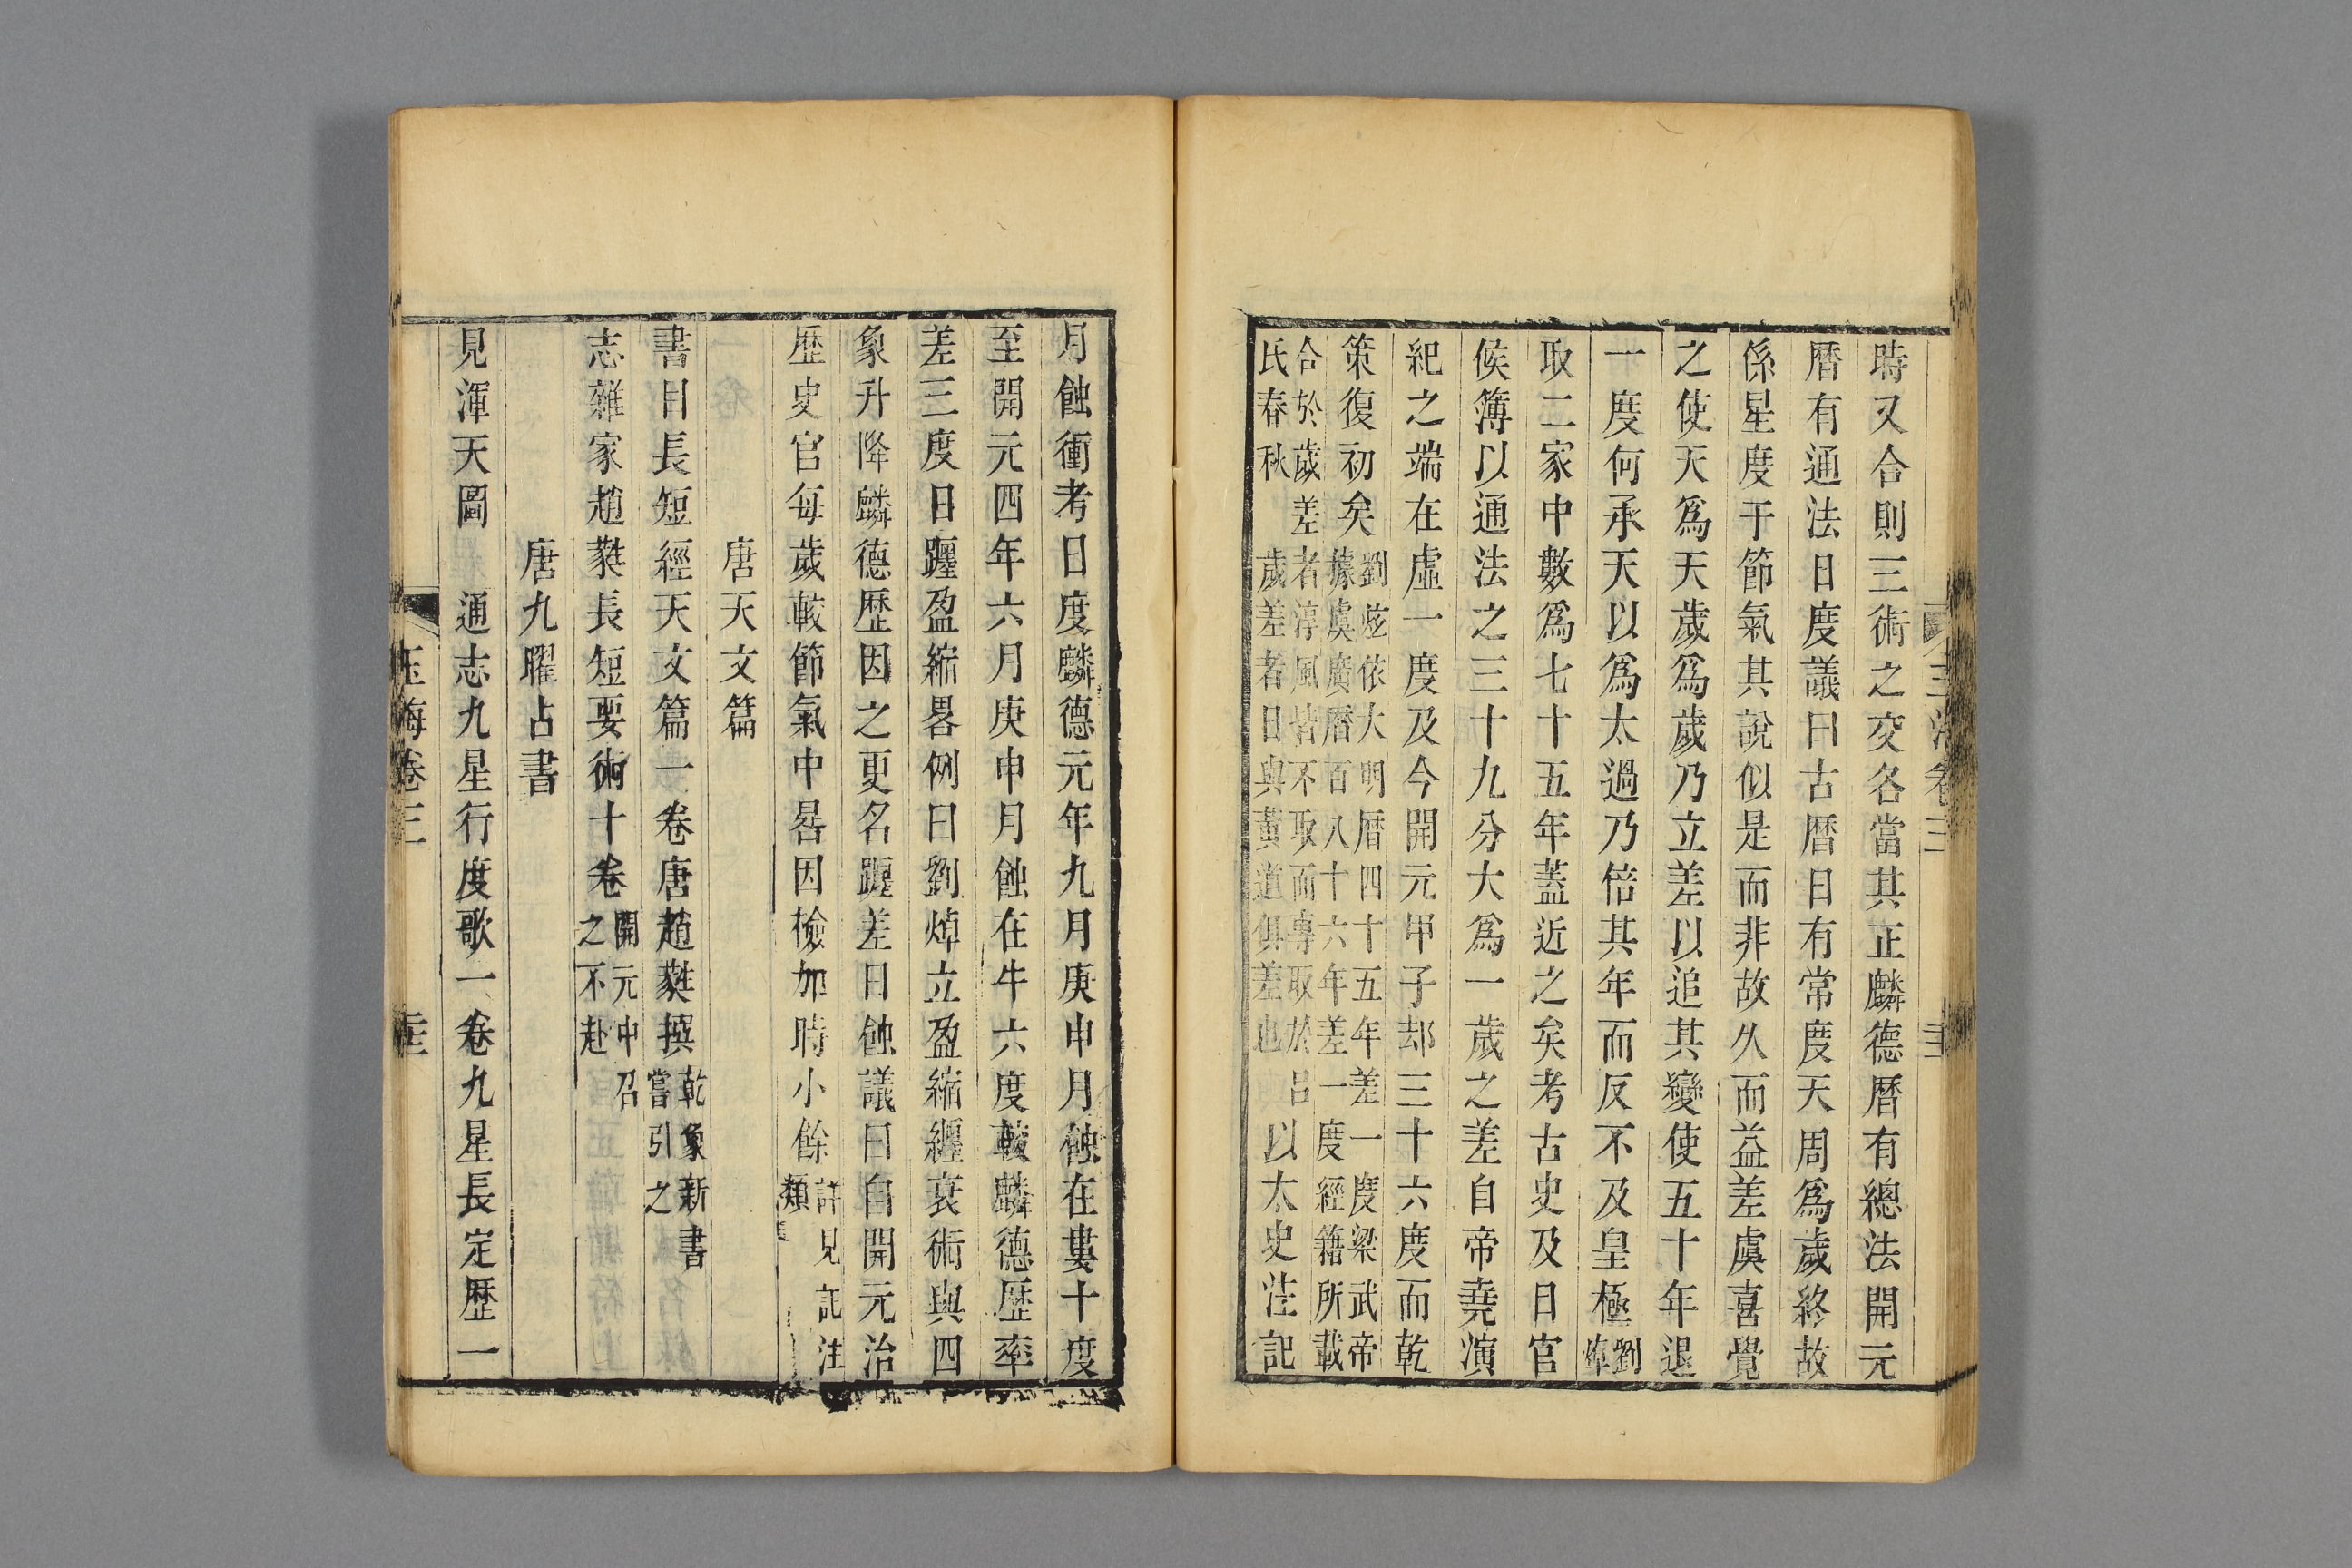 時又合則三術之交各當其正麟德曆有總法開元
曆有通法日度議曰古曆日有常度天周爲歲終故
係星度于節氣其說似是而非故久而益差虞喜覺
之使天爲天歲爲歲乃立差以追其變使五十年退
一度何承天以爲太過乃倍其年而反不及皇極劉焯
取二家中數爲七十五年蓋近之矣考古史及日官
候簿以通法之三十九分大爲一歲之差自帝堯演
紀之端在虛一度及今開元甲子却三十六度而乾
策復初矣劉炫依大明曆四十五年差一度梁武帝據虞廣曆百八十六年差一度經籍所載
合於歲差者淳風皆不取而專取於呂氏春秋 歲差者日與黃道俱差也以太史注記
月蝕衝考日度麟德元年九月庚申月蝕在婁十度
至開元四年六月庚申月蝕在牛六度較麟德歷率
差三度日躔盈縮畧例曰劉焯立盈縮躔衰術與四
象升降麟德歷因之更名躔差日蝕議曰自開元治
歷史官每歲較節氣中晷因檢加時小餘詳見記注類
唐天文篇
書目長短經天文篇一卷唐趙蕤撰乾象新書嘗引之
志雜家趙蕤長短要術十卷開元中召之不赴
唐九曜占書
見渾天圖 通志九星行度歌一卷九星長定歷一
玉海卷三